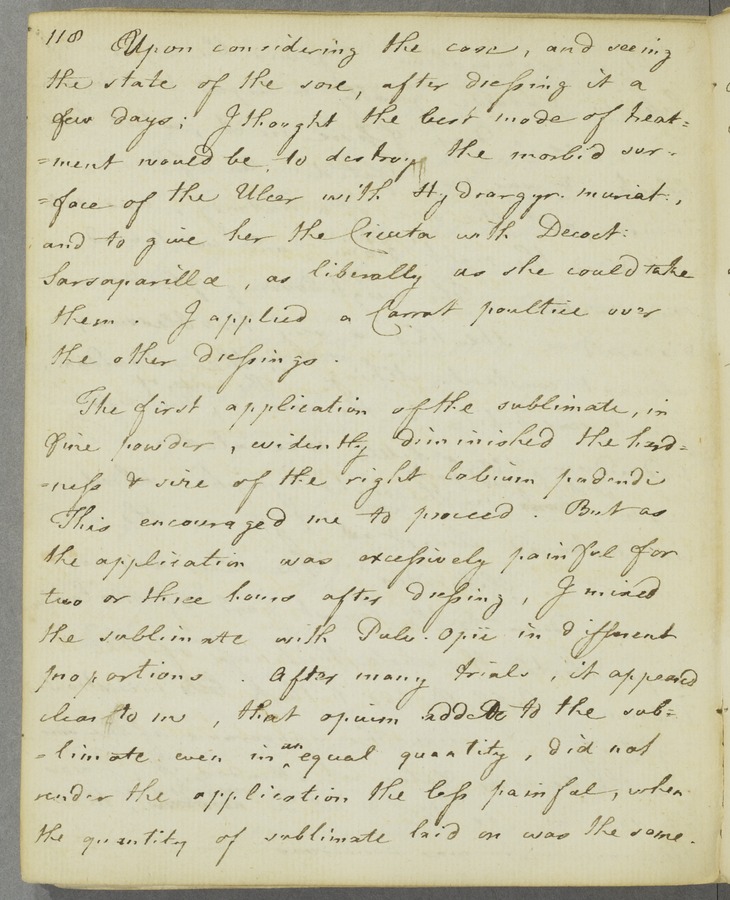 118 Upon considering the case, and seeing
the state of the sore, after dressing it a
few days; I thought the best mode of treat=
=ment would be to destroy the morbid sur=
=face of the Ulcer with Hydrargyr. muriat:,
and to give her the Cicuta with Decoct:
Sarsaparillæ, as liberally as she could take
them. I applied a Carrot poultice over
the other dressings.
The first application of the sublimate, in
fine powder, evidently diminished the hard=
=ness & size of the right labium pudendi
This encouraged me to proceed. But as
the application was excessively painful for
two or three hours after dressing, I mixed
the sublimate with Pulv. opii in different
proportions. After many trials, it appeared
clear to me, that opium added to the sub=
=limate even in an equal quantity, did not
render the application the less painful, when
the quantity of sublimate laid on was the same.